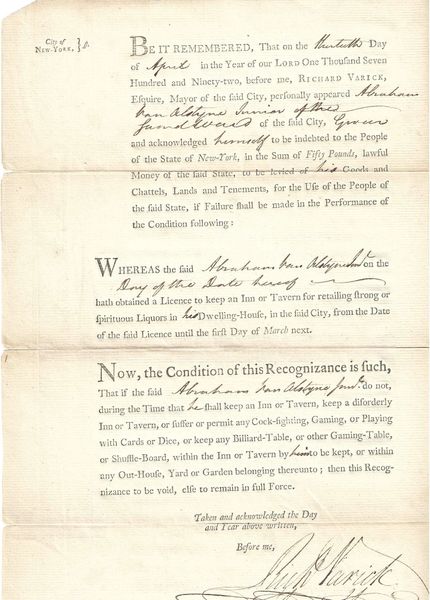 City of
NEW-YORK, } ss.
BE IT REMEMBERED, That on the thirtieth Day
of April in the Year of our LORD One Thousand Seven
Hundred and Ninety-two, before me, RICHARD VARICK,
Esquire, Mayor of the said City, personally appeared Abraham
Van Alstyne Junior of the
Second Ward of the said City, Grocer
and acknowledged himself to be indebted to the People
of the State of New-York, in the Sum of Fifty Pounds, lawful
Money of the said State, to be levied of his Goods and
Chattels, Lands and Tenements, for the Use of the People of
the said State, if Failure shall be made in the Performance of
the Condition following:
WHEREAS the said Abraham Van Alstyne Junr. on the
Day of the Date hereof
hath obtained a Licence to keep an Inn or Tavern for retailing strong or
spirituous Liquors in his Dwelling-House, in the said City, from the Date
of the said Licence until the first Day of March next.
Now, the Condition of this Recognizance is such,
That if the said Abraham Van Alstyne Junr. do not,
during the Time that he shall keep an Inn or Tavern, keep a disorderly
Inn or Tavern, or suffer or permit any Cock-fighting, Gaming, or Playing
with Cards or Dice, or keep any Billiard-Table, or other Gaming-Table,
or Shuffle-Board, within the Inn or Tavern by him to be kept, or within
any Out-House, Yard or Garden belonging thereunto; then this Recog-
nizance to be void, else to remain in full Force.
Taken and acknowledged the Day
and Year above written,
Before me,
Richd Varick